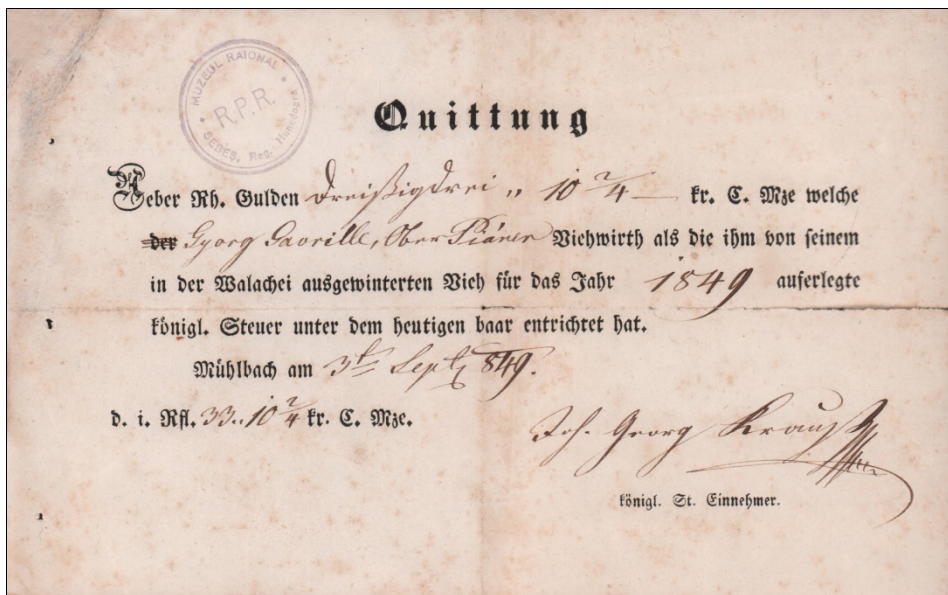 MUZEUL RAIONAL
R.P.R.
SEBES, Reg. Hunedoara
Quittung
Ueber Rh. Gulden Dreißigdrei „ 10 2/4 — kr. C. Mze welche
der Georg Gavrille, Ober Piáner Viehwirth als die ihm von seinem
in der Walachei ausgewinterten Vieh für das Jahr 1849 auferlegte
königl. Steuer unter dem heutigen baar entrichtet hat.
Mühlbach am 3t Sept 849.
d. i. Rfl. 33„10 2/4 kr. C. Mze.
Joh. Georg Krauß
königl. St. Einnehmer.